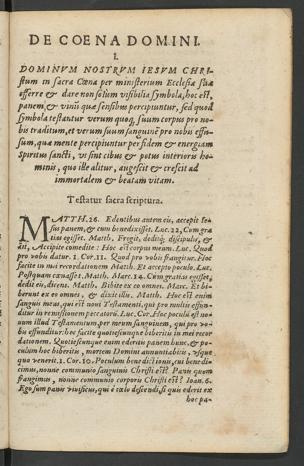 DE COENA DOMINI.
I.
DOMINVM NOSTRVM IESVM CHRI-
stum in sacra Cœna per ministerium Ecclesiæ suæ
afferre & dare non solum visibilia symbola, hoc est,
panem, & vinũ quæ sensibus percipiuntur, sed quod
symbola testantur verum quoq; suum corpus pro no-
bis traditum, et verum suum sanguinẽ pro nobis effu-
sum, quæ mente percipiuntur per fidem & energiam
Spiritus sancti, vt sint cibus & potus interioris ho-
minis, quo ille alitur, augescit & crescit ad
immortalem & beatam vitam.
Testatur sacra scriptura.
MATTH. 26. Edentibus autem eis, accepit Ie-
sus panem, & cum benedixisset. Luc. 22, Cum gra
tias egisset. Matth. Fregit, deditq; discipulis, &
ait, Accipite comedite: Hoc est corpus meum. Luc. Quod
pro vobis datur. 1. Cor. 11. Quod pro vobis frangitur. Hoc
facite in mei recordationem Matth. Et accepto poculo. Luc.
Postquam cœnasset. Matth. Marc. 14. Cum gratias egisset,
dedit eis, dicens. Matth. Bibite ex eo omnes. Marc. Et bi-
berunt ex eo omnes, & dixit illis. Matth. Hoc est enim
sanguis meus, qui est noui Testamenti, qui pro multis effun-
ditur in remissionem peccatorũ. Luc. Hoc poculũ est no-
uum illud Testamentum, per meum sanguinem, qui pro vo-
bis effunditur: hoc facite quotiescunque biberitis in mei recor
dationem. Quotiescunque enim ederitis panem hunc, & po-
culum hoc biberitis, mortem Domini annuntiabitis, vsque
quo venerit. 1. Cor. 10. Poculum benedictionis, cui benedi-
cimus, nonne communio sanguinis Christi est? Panis quem
frangimus, nonne communio corporis Christi est? Ioan. 6.
Ego sum panis viuificus, qui è cœlo descendi, si quis ederit ex
hoc pa-